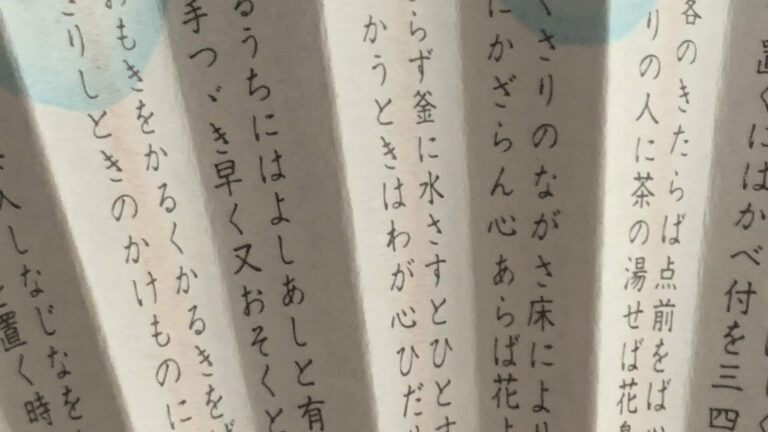 置くにはかべ付を三四
客のきたらば点前をば
りの人に茶の湯せば花
くさりのながさ床により
にかざらん心あらば花
らず釜に水さすとひとす
かうときはわが心ひだ
るうちにはよしあしと有
手つゞき早く又おそくと
おもきをかるくかるきを
さりしときのかけものに
入しなじなを
置く時